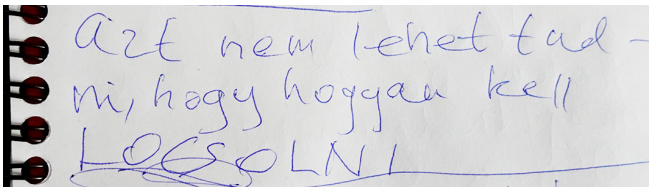 Azt nem lehet tud-
ni, hogy hogyan kell
LOCSOLNI